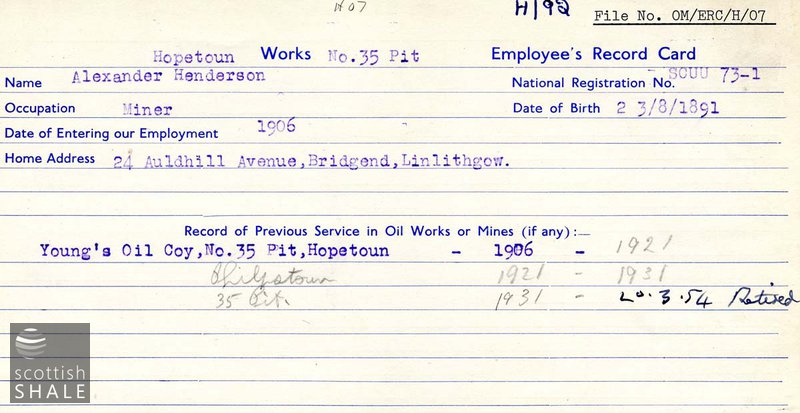 H07
H/92
File No. OM/ERC/H/07
Hopetoun Works No.35 Pit Employee's Record Card
Name Alexander Henderson National Registration No. SCUU 73-1
Occupation Miner Date of Birth 2 3/8/1891
Date of Entering our Employment 1906
Home Address 24 Auldhill Avenue,Bridgend,Linlithgow.
Record of Previous Service in Oil Works or Mines (if any):—
Young's Oil Coy,No.35 Pit,Hopetoun - 1906 - 1921
Philpstoun 1921 - 1931
35 Pit. 1931 - 20.3.54 Retired
scottish
SHALE